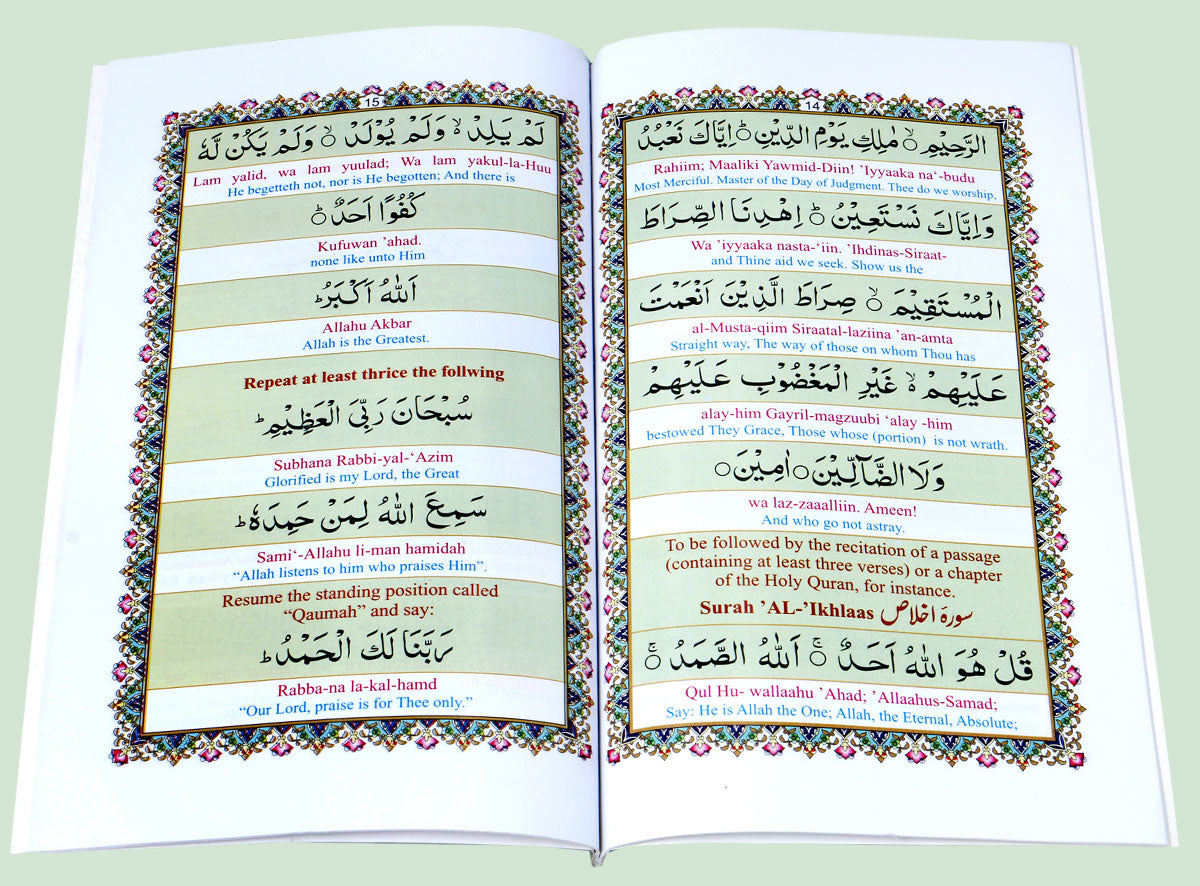 14
الرَّحِيْمِ ۙ مٰلِكِ يَوْمِ الدِّيْنِ ؕ اِيَّاكَ نَعْبُدُ
Rahiim; Maaliki Yawmid-Diin! ’Iyyaaka na‘-budu
Most Merciful. Master of the Day of Judgment. Thee do we worship,
وَاِيَّاكَ نَسْتَعِيْنُ ؕ اِهْدِنَا الصِّرَاطَ
Wa ’iyyaaka nasta-‘iin. ’Ihdinas-Siraat-
and Thine aid we seek. Show us the
الْمُسْتَقِيْمَ ۙ صِرَاطَ الَّذِيْنَ اَنْعَمْتَ
al-Musta-qiim Siraatal-laziina ’an-amta
Straight way, The way of those on whom Thou has
عَلَيْهِمْ ۙ غَيْرِ الْمَغْضُوْبِ عَلَيْهِمْ
alay-him Gayril-magzuubi ‘alay -him
bestowed They Grace, Those whose (portion) is not wrath.
وَلَا الضَّآلِّيْنَ۝ اٰمِيْنَ۝
wa laz-zaaalliin. Ameen!
And who go not astray.
To be followed by the recitation of a passage
(containing at least three verses) or a chapter
of the Holy Quran, for instance.
Surah ’AL-’Ikhlaas سورة اخلاص
قُلْ هُوَ اللّٰهُ اَحَدٌ ۚ اَللّٰهُ الصَّمَدُ ۚ
Qul Hu- wallaahu ’Ahad; ’Allaahus-Samad;
Say: He is Allah the One; Allah, the Eternal, Absolute;
15
لَمْ يَلِدْ ۙ وَلَمْ يُوْلَدْ ۙ وَلَمْ يَكُنْ لَّهٗ
Lam yalid, wa lam yuulad; Wa lam yakul-la-Huu
He begetteth not, nor is He begotten; And there is
كُفُوًا اَحَدٌ ؕ
Kufuwan ’ahad.
none like unto Him
اَللّٰهُ اَكْبَرُ ؕ
Allahu Akbar
Allah is the Greatest.
Repeat at least thrice the follwing
سُبْحَانَ رَبِّيَ الْعَظِيْمِ ؕ
Subhana Rabbi-yal-‘Azim
Glorified is my Lord, the Great
سَمِعَ اللّٰهُ لِمَنْ حَمِدَهٗ ؕ
Sami‘-Allahu li-man hamidah
“Allah listens to him who praises Him”.
Resume the standing position called
“Qaumah” and say:
رَبَّنَا لَكَ الْحَمْدُ ؕ
Rabba-na la-kal-hamd
“Our Lord, praise is for Thee only.”